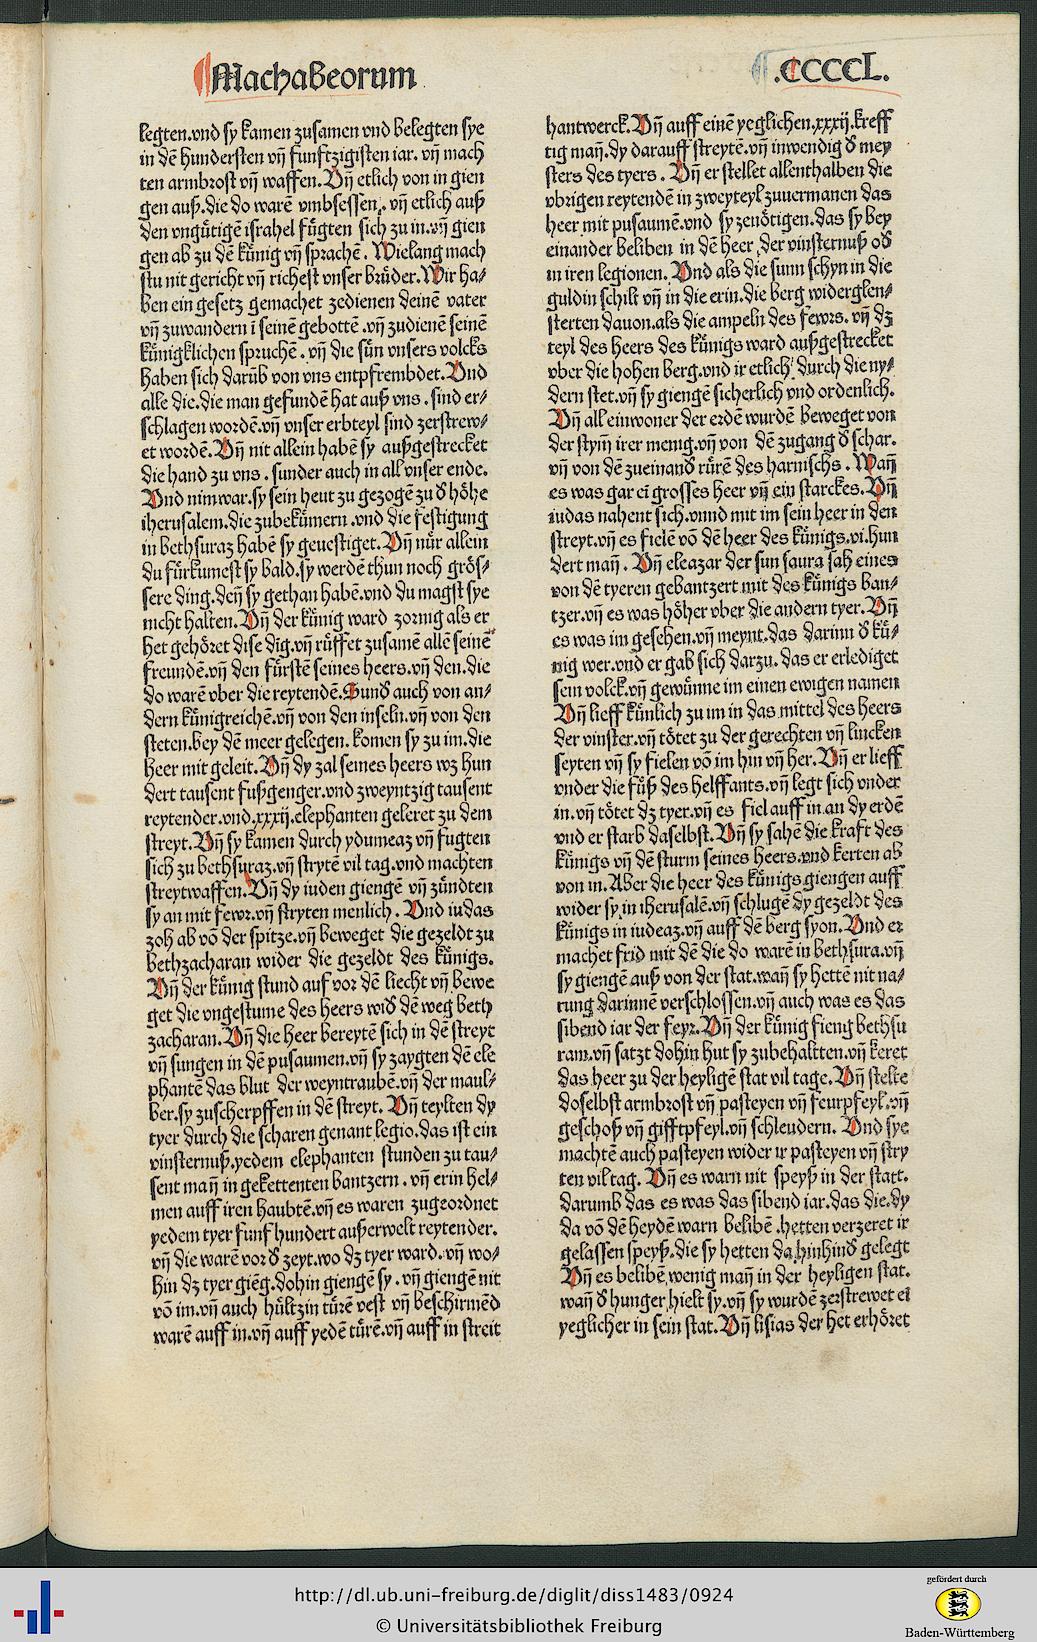 Machabeorum
.CCCCL.
legten.vnd sy kamen zusamen vnd belegten sye
in dē hundersten vn̄ funftzigisten iar. vn̄ mach
ten armbrost vn̄ waffen. Vn̄ etlich von in gien
gen auß.die do warē vmbsessen. vn̄ etlich auß
den vngu̇tigē israhel fu̇gten sich zu in.vn̄ gien
gen ab zu dē ku̇nig vn̄ sprachē. Wielang mach
stu nit gericht vn̄ richest vnser bru̇der. Wir ha⸗
ben ein gesetz gemachet zedienen deinē vater
vn̄ zuwandern ī seinē gebottē .vn̄ zudienē seinē
ku̇nigklichen spruchē. vn̄ die su̇n vnsers volcks
haben sich daru̇b von vns entpfrembdet. Vnd
alle die.die man gefundē hat auß vns . sind er⸗
schlagen wordē.vn̄ vnser erbteyl sind zerstrew⸗
et wordē. Vn̄ nit allein habē sy außgestrecket
die hand zu vns . sunder auch in all vnser ende.
Vnd nimwar.sy sein heut zu gezogē zu d̕ hȯhe
iherusalem.die zubeku̇mern .vnd die festigung
in bethsuraz habē sy geuestiget. Vn̄ nu̇r allein
du fu̇rkumest sy bald.sy werdē thun noch grȯs⸗
sere ding.den̄ sy gethan habē.vnd du magst sye
nicht halten. Vn̄ der ku̇nig ward zornig als er
het gehȯret dise dig.vn̄ ru̇ffet zusamē allē seinē
freundē.vn̄ den fu̇rstē seines heers.vn̄ den.die
do warē vber die reytendē.Sund̕ auch von an⸗
dern ku̇nigreichē.vn̄ von den inseln.vn̄ von den
steten.bey dē meer gelegen. komen sy zu im.die
heer mit geleit. Vn̄ dy zal seines heers wz hun
dert tausent fußgenger.vnd zweyntzig tausent
reytender.vnd.xxxij.elephanten geleret zu dem
streyt. Vn̄ sy kamen durch ydumeaz vn̄ fugten
sich zu bethsuraz.vn̄ strytē vil tag.vnd machten
streytwaffen. Vn̄ dy iuden giengē vn̄ zu̇ndten
sy an mit fewr.vn̄ stryten menlich . Vnd iudas
zoh ab vō der spitze.vn̄ beweget die gezeldt zu
bethzacharan wider die gezeldt des ku̇nigs.
Vn̄ der ku̇nig stund auf vor dē liecht vn̄ bewe
get die vngestume des heers wid̕ dē weg beth
zacharan. Vn̄ die heer bereytē sich in dē streyt
vn̄ sungen in dē pusaumen.vn̄ sy zaygten dē ele
phantē das blut der weyntraubē.vn̄ der maul⸗
ber.sy zuscherpffen in dē streyt. Vn̄ teylten dy
tyer durch die scharen genant legio.das ist ein
vinsternuß.yedem elephanten stunden zu tau⸗
sent man̄ in gekettenten bantzern . vn̄ erin hel⸗
men auff iren haubtē.vn̄ es waren zugeordnet
yedem tyer funf hundert außerwelt reytender.
vn̄ die warē vor d̕ zeyt.wo dz tyer ward. vn̄ wo⸗
hin dz tyer giēg.dohin giengē sy . vn̄ giengē nit
vō im.vn̄ auch hu̇ltzin tu̇rē vest vn̄ beschirmēd
warē auff in.vn̄ auff yedē tu̇rē.vn̄ auff in streit
hantwerck. Vn̄ auff einē yeglichen.xxxij.kreff
tig man̄.dy darauff streytē.vn̄ inwendig d̕ mey
sters des tyers . Vn̄ er stellet allenthalben die
vbrigen reytendē in zweyteyl zuuermanen das
heer mit pusaumē.vnd sy zenȯtigen.das sy bey
einander beliben in dē heer der vinsternuß od̕
in iren legionen. Vnd als die sunn schyn in die
guldin schilt vn̄ in die erin.die berg widerglen⸗
sterten dauon.als die ampeln des fewrs. vn̄ dz
teyl des heers des ku̇nigs ward außgestrecket
vber die hohen berg.vnd ir etlich durch die ny⸗
dern stet.vn̄ sy giengē sicherlich vnd ordenlich.
Vn̄ all einwoner der erdē wurdē beweget von
der stym̄ irer menig.vn̄ von dē zugang d̕ schar.
vn̄ von dē zueinand̕ ru̇rē des harnischs . Wan̄
es was gar eī grosses heer vn̄ ein starckes. Vn̄
iudas nahent sich.vnnd mit im sein heer in den
streyt.vn̄ es fielē vō dē heer des ku̇nigs.vi.hun
dert man̄ . Vn̄ eleazar der sun saura sah eines
von dē tyeren gebantzert mit des ku̇nigs ban⸗
tzer.vn̄ es was hȯher vber die andern tyer. Vn̄
es was im gesehen.vn̄ meynt.das darinn d̕ ku̇⸗
nig wer.vnd er gab sich darzu. das er erlediget
sein volck.vn̄ gewu̇nne im einen ewigen namen
Vn̄ lieff ku̇nlich zu im in das mittel des heers
der vinster.vn̄ tȯtet zu der gerechten vn̄ lincken
seyten vn̄ sy fielen vō im hin vn̄ her. Vn̄ er lieff
vnder die fu̇ß des helffants.vn̄ legt sich vnder
in.vn̄ tȯtet dz tyer.vn̄ es fiel auff in an dy erdē
vnd er starb daselbst. Vn̄ sy sahē die kraft des
ku̇nigs vn̄ dē sturm seines heers.vnd kerten ab
von in. Aber die heer des ku̇nigs giengen auff
wider sy in iherusalē.vn̄ schlugē dy gezeldt des
ku̇nigs in iudeaz.vn̄ auff dē berg syon. Vnd er
machet frid mit dē die do warē in bethsura.vn̄
sy giengē auß von der stat.wan̄ sy hettē nit na⸗
rung darinnē verschlossen.vn̄ auch was es das
sibend iar der feyr. Vn̄ der ku̇nig fieng bethsu
ram.vn̄ satzt dohin hut sy zubehaltten.vn̄ keret
das heer zu der heyligē stat vil tage. Vn̄ stelte
doselbst armbrost vn̄ pasteyen vn̄ feurpfeyl.vn̄
geschoß vn̄ gifftpfeyl.vn̄ schleudern. Vnd sye
machtē auch pasteyen wider ir pasteyen vn̄ stry
ten vil tag. Vn̄ es warn nit speyß in der statt.
darumb das es was das sibend iar.das die.dy
da vō dē heydē warn belibē .hetten verzeret ir
gelassen speyß.die sy hetten da hinhind̕ gelegt
Vn̄ es belibē wenig man̄ in der heyligen stat.
wan̄ d̕ hunger hielt sy.vn̄ sy wurdē zerstrewet eī
yeglicher in sein stat. Vn̄ lisias der het erhȯret
http://dl.ub.uni-freiburg.de/diglit/diss1483/0924
© Universitätsbibliothek Freiburg
gefördert durch
Baden-Württemberg